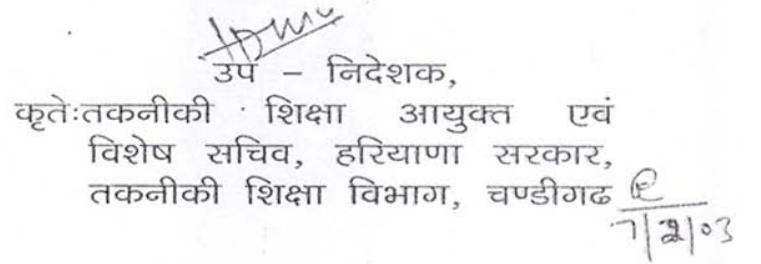 उप – निदेशक,
कृतेःतकनीकी शिक्षा आयुक्त एवं
विशेष सचिव, हरियाणा सरकार,
तकनीकी शिक्षा विभाग, चण्डीगढ